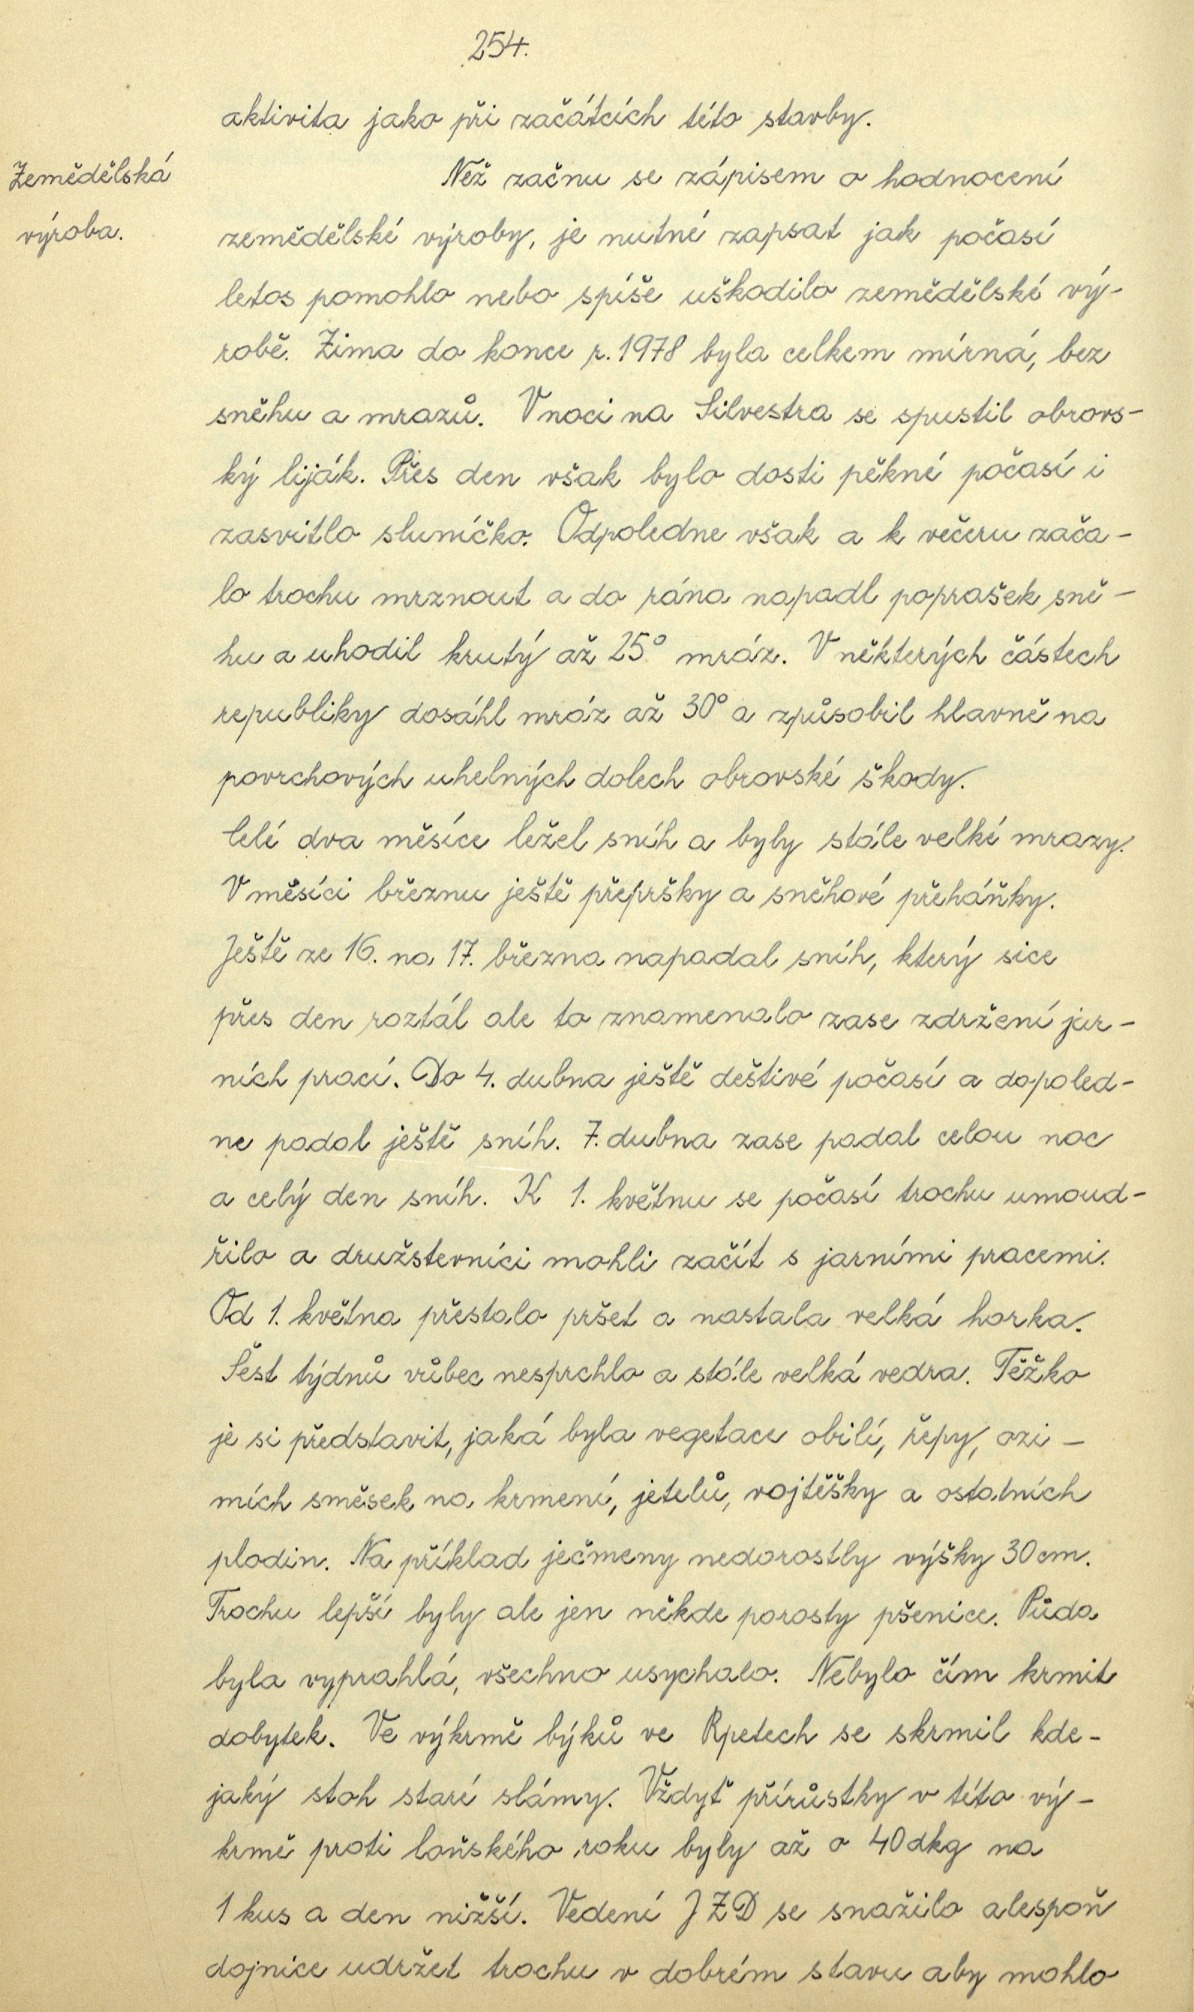 254.
aktivita jako při začátcích této stavby.
Zemědělská
výroba.
Než začnu se zápisem o hodnocení
zemědělské výroby, je nutné zapsat jak počasí
letos pomohlo nebo spíše uškodilo zemědělské vý-
robě. Zima do konce r. 1978 byla celkem mírná, bez
sněhu a mrazů. V noci na Silvestra se spustil obrovs-
ký liják. Přes den však bylo dosti pěkné počasí i
zasvitlo sluníčko. Odpoledne však a k večeru zača-
lo trochu mrznout a do rána napadl poprašek sně-
hu a uhodil krutý až 25° mráz. V některých částech
republiky dosáhl mráz až 30° a způsobil hlavně na
povrchových uhelných dolech obrovské škody.
Celé dva měsíce ležel sníh a byly stále velké mrazy.
V měsíci březnu ještě přepršky a sněhové přeháňky.
Ještě ze 16. na 17. března napadal sníh, který sice
přes den roztál ale to znamenalo zase zdržení jar-
ních prací. Do 4. dubna ještě deštivé počasí a dopoled-
ne padal ještě sníh. 7. dubna zase padal celou noc
a celý den sníh. K 1. květnu se počasí trochu umoud-
řilo a družstevníci mohli začít s jarními pracemi.
Od 1. května přestalo pršet a nastala velká horka.
Šest týdnů vůbec nesprchlo a stále velká vedra. Těžko
je si představit, jaká byla vegetace obilí, řepy, ozi-
mích směsek na krmení, jetelů, vojtěšky a ostatních
plodin. Na příklad ječmeny nedorostly výšky 30 cm.
Trochu lepší byly ale jen někde porosty pšenice. Půda
byla vyprahlá, všechno usychalo. Nebylo čím krmit
dobytek. Ve výkrmě býků ve Rpetech se skrmil kde-
jaký stoh staré slámy. Vždyť přírůstky v této vý-
krmě proti loňského roku byly až o 40 dkg na
1 kus a den nižší. Vedení JZD se snažilo alespoň
dojnice udržet trochu v dobrém stavu aby mohlo